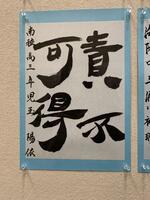 責不
可得
南稜高三年 児玉 陽依